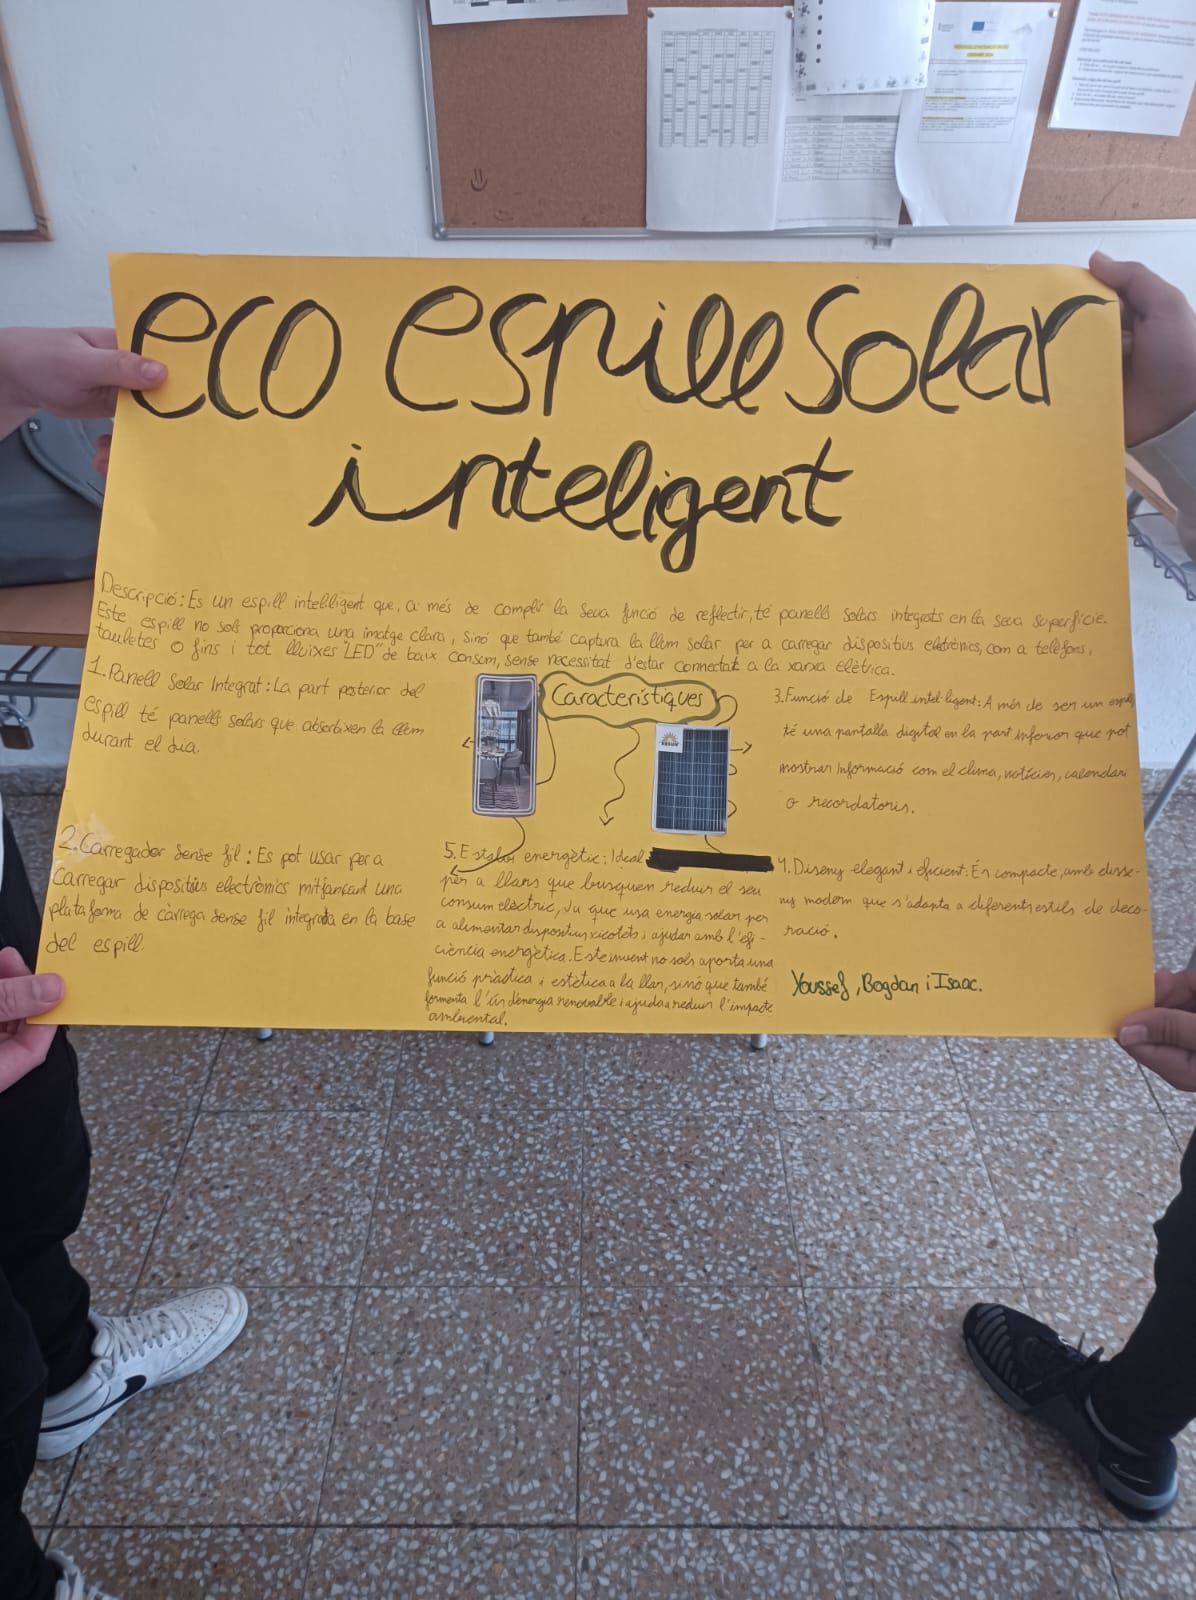 eco espill solar
inteligent
Descripció: És un espill intel·ligent que, a més de complir la seua funció de reflectir, té panells solars integrats en la seua superfície.
Este espill no sols proporciona una imatge clara, sinó que també captura la llum solar per a carregar dispositius elèctronics, com a telèfons,
tauletes o fins i tot lluixes "LED" de baix consum, sense necessitat d'estar connectat a la xarxa elètrica.
1. Panell Solar Integrat: La part posterior del
espill té panells solars que absorbixen la llum
durant el dia.
2. Carregador sense fil: Es pot usar per a
carregar dispositius electrònics mitjançant una
plataforma de càrrega sense fil integrada en la base
del espill.
Característiques
RESUN
3. Funció de Espill intel·ligent: A més de ser un espill,
té una pantalla digital en la part inferior que pot
mostrar informació com el clima, notícies, calendari
o recordatoris.
4. Diseny elegant i eficient: És compacte, amb disse-
ny modern que s'adapta a diferents estils de deco-
ració.
5. Estalvi energètic: Ideal
per a llars que busquen reduir el seu
consum elèctric, Ja que usa energia solar per
a alimentar dispositius xicotets i ajudar amb l'efi-
ciència energètica. Este invent no sols aporta una
funció pràctica i estètica a la llar, sinó que també
fomenta l'ús d'energia renovable i ajuda a reduir l'impacte
ambiental.
Youssef, Bogdan i Isaac.